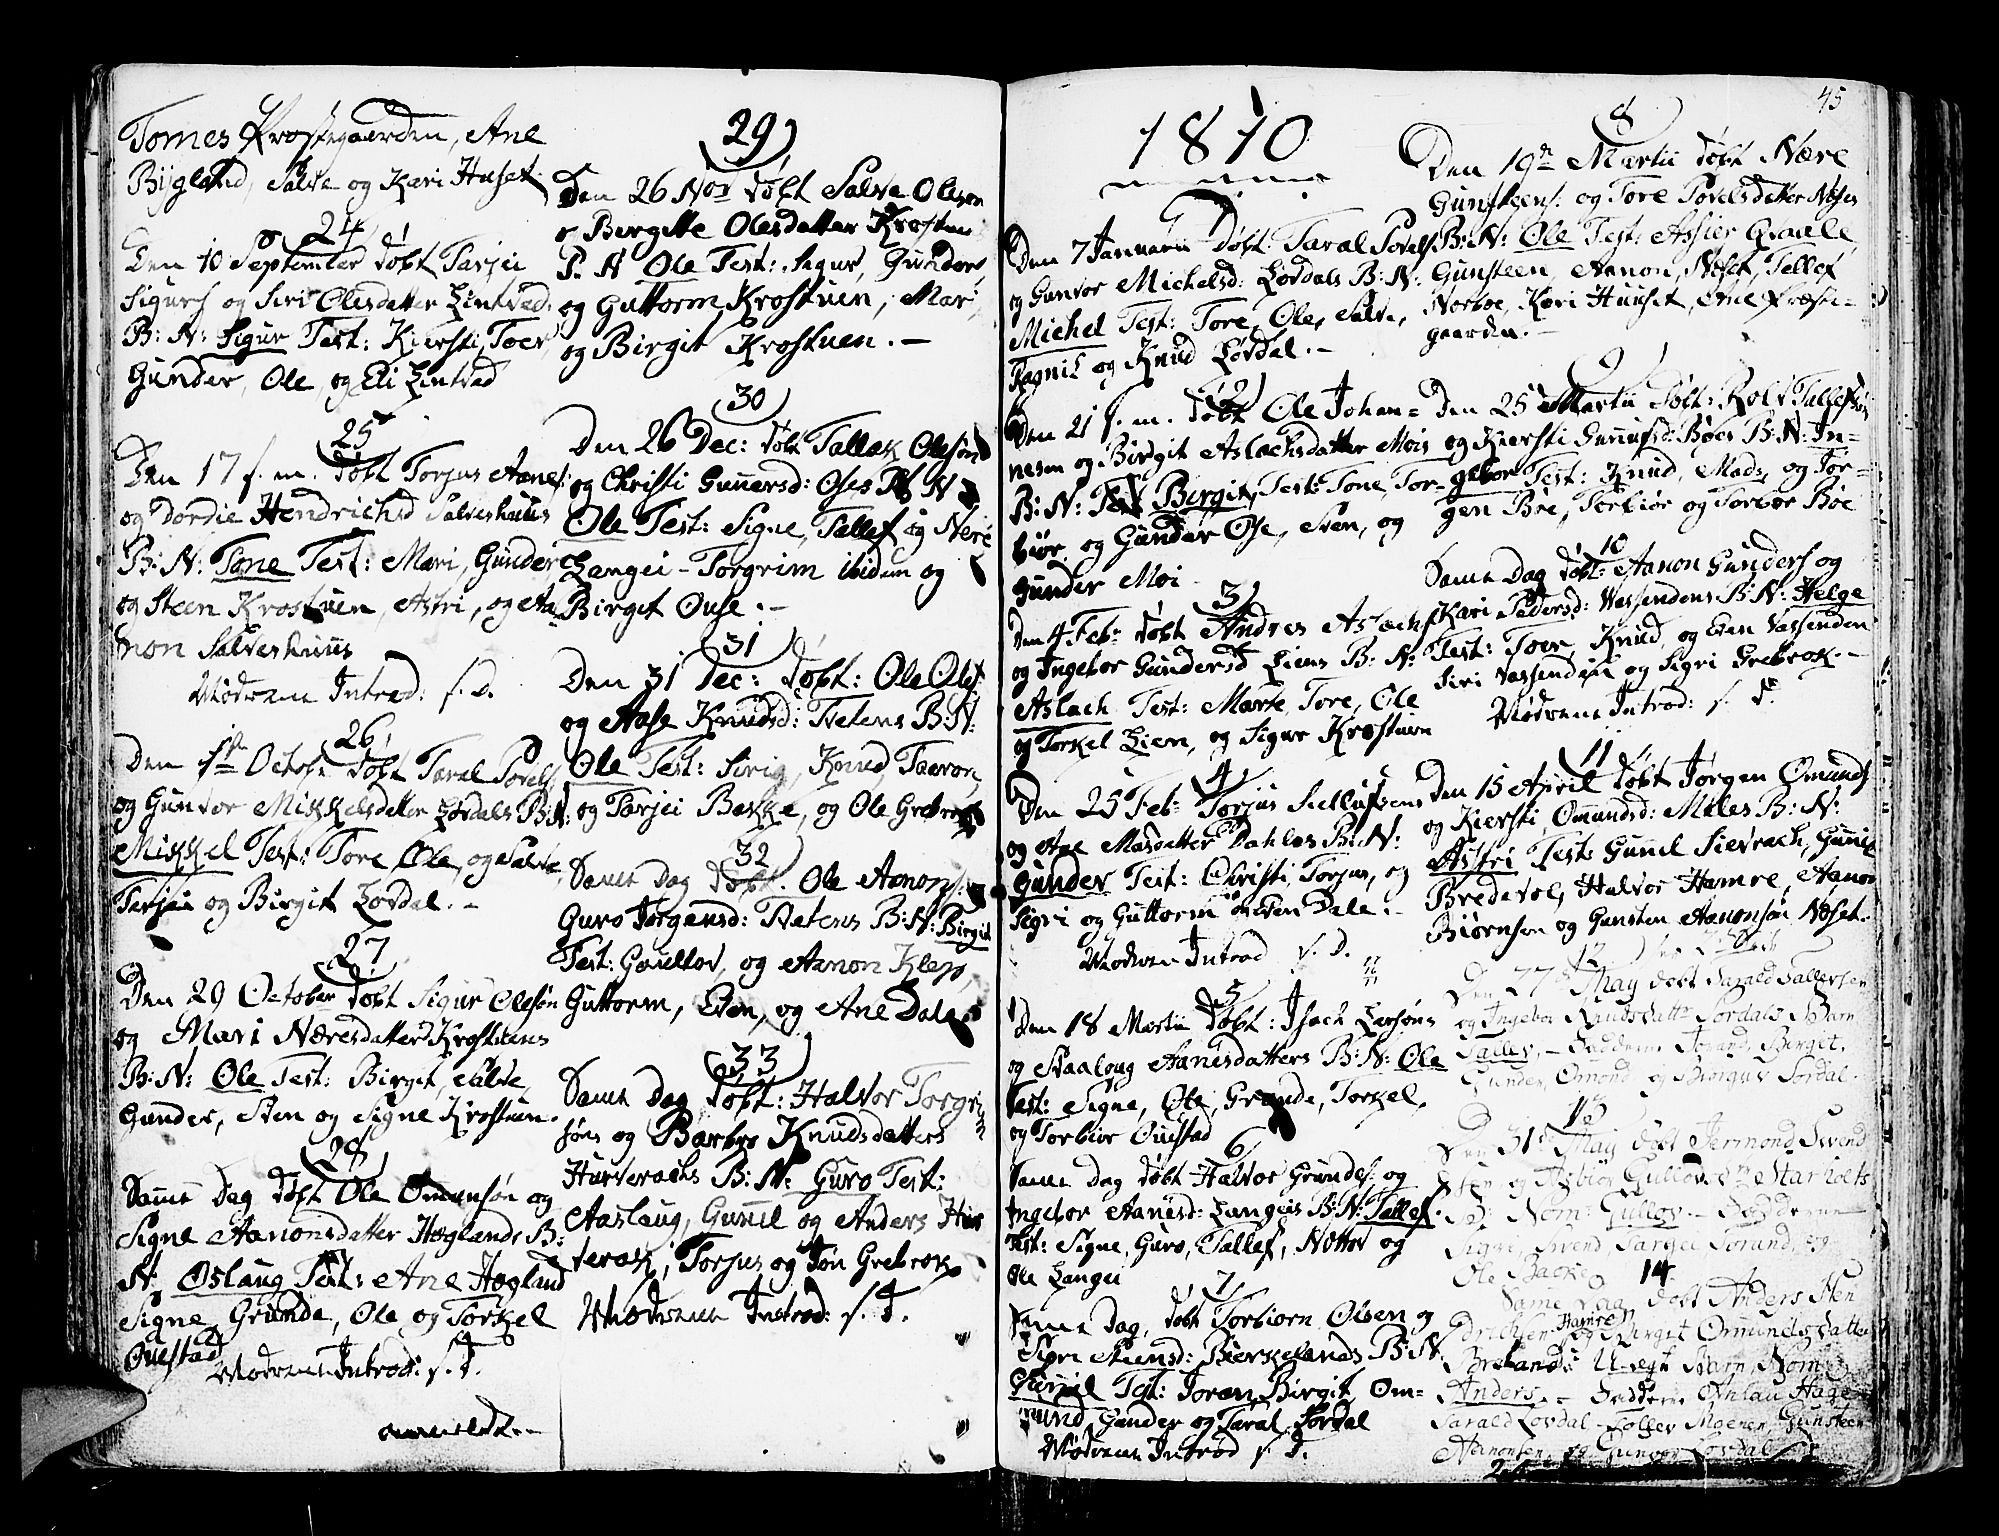 Tomes Præstegaarden, Ane
Bygland, Salve og Kari Huset.
24
Den 10 September døbt Tarjei
Sigurs og Siri Olesdatter Lintved
B: N: Sigur Test: Kiersti, Toer,
Gunder, Ole, og Eli Lintved
25
Den 17 s. m. døbt Torjus Aanes:
og Dordie Hendrichsd Salveshuus
B: N: Tone Test: Mari, Gunder
og Steen Krostuen, Astri, og Aa
non Salveshuus
Mødrene Introd: s. D.
26
Den 1ste Octobr døbt Taral Torels
og Gunvor Mikkelsdatter Lordals B: N:
Mikkel Test: Tore Ole, og Salve,
Tarjei og Birgit Lordal. -
27
Den 29 October døbt Sigur Olesøn
og Mari Næresdatter Krostuens
B: N: Ole Test: Birgit, Salve,
Gunder, Sven og Signe Krostuen.
28
Same Dag døbt Ole Omunsøn og
Signe Aanonsdatter Høglands B:
N: Oslaug Test: Ane Høgland
Signe, Grunde, Ole og Torkel
Ouestad
Mødrene Introd: s. D.
anmeldt. -
29
Den 26 Nov døbt Salve Olesen
og Bergitte Olesdatter Krostuen
B. N Ole Test: Sigur, Gunder,
og Guttorm Krostuen, Mari,
og Birgit Krostuen. -
30
Den 26 Dec: døbt Tallak Olesøn
og Christi Gunnersd: Oses B N
Ole Test: Signe, Tallef og Neri
Langei - Torgrim ibidem og
Birgit Ouse. -
31
Den 31 Dec: døbt: Ole Oles
og Aase Knudsd: Tvetens B: N:
Ole Test: Sirig, Knud, Taaron,
og Tarjei Bakke, og Ole Grebrok
32
Same Dag døbt. Ole Aanons
Guro Jørgensd: Tvetens B: N: Birgit
Test: Goullov, og Aanon Klep,
Guttorm, Even, og Ane Dale
33
Same Dag døbt: Halvor Torgrim
søns og Barbro Knudsdatters
Hurveraks B: N: Guro Test:
Aaslaug, Gunil og Anders Hur
verak, Torjus og Jøn Grebrok
Mødrene Introd: s. D.
45
1810
1
Den 7 Januarii døbt Taral Torels
og Gunvor Michelsd: Lordals B: N:
Michel Test: Tore, Ole, Salve,
Ragnil og Knud Lordal. -
2
Den 21 s. m. døbt Ole Johan=
nesen og Birgit Aslachsdatter Mois
B: N: Birgit, Test: Tone, Tor-
biør og Gunder Ose, Sven, og
Gunder Moi
3
Den 4 Febr døbt Andres Aslachs
og Ingebor Gundersd Liens B: N:
Aslach Test: Marte, Tore, Ole
og Torkel Lien, og Sigur Krostuen
4
Den 25 Feb: Torjus Sellufsens
og Ane Masdatter Dahles B: N:
Gunder Test: Christi, Torjus, og
Sigri og Guttorm Even Dale. -
Mødrene Introd s. D.
5
Den 18 Martii døbt: Isach Larsøns
og Staaloug Aanesdatters B: N: Ole
Test: Signe, Ole, Grunde, Torkel,
og Torbiør Ouestad
6
Same Dag døbt Halvor Grundes: og
Ingebor Aanesd: Langeis B: N: Tallef.
Test: Signe, Guro, Tallef, Nottov og
Ole Langei
7
Same Dag, døbt Torbiørn Olsen og
Sigri Steensd: Bierkelands B: N
Gunnil Test: Joran, Birgit, Om=
mund, Gunder og Taral Lordal
Mødrene Introd s. D.
8
Den 19de Martii døbt Nære
Gunsteens: og Tore Torelsdatter Nøses
B: N: Ole Test: Assier Graale,
Gunsteen, Aanon, Nøset, Tallef
Norboe, Kari Huuset, Ane Præste-
gaarden. -
9
Den 25 Martii døbt: Rolv Tallefsøn
og Kiersti Gunnufsd: Bøes B: N: In=
gebor Test: Knud, Mads, og Tor=
gen Bøe, Torbiør og Torbor Bøe
10
Same Dag døbt: Aanon Gunders og
Kari Pedersd: Vassendens B: N: Helge
Test: Toer, Knud, og Even Vassenden
Siri Vassenden og Sigri Grebrok. -
Mødrene Introd: s. D.
11
Den 15 April døbt Jørgen Omunds
og Kiersti Omundsd: Moles B: N:
Astri Test: Gunil Sievrach, Gunil
Bredevol, Halvor Hamre, Aanon
Biørnsen og Gunsten Aanonsøn Nøset.
12
Den 27de May døbt Tarald Tallevsen
og Ingebor Knudsdatter Lordals Barn
Tallev. - Fadderne Jorand, Birgit,
Gunder, Omond og Birgur Lordal.
13
Den 31te May døbt Jermond Svend
sen og Asbiør Gullovs Starholts
B: Nom: Gullov. - Fadderne
Sigri, Svend, Targei Torund, og
Ole Backe
14
Same Dag døbt Anders Hen
drichsen Hamre og Birget Omundsdatter
Brelands Uægt Barn, Nom:
Anders. - Fadderne Athlau Hage
Tarald Lordal - Tollev Moenen, Gunsteen
Aanonsen, og Gunvor Lordal